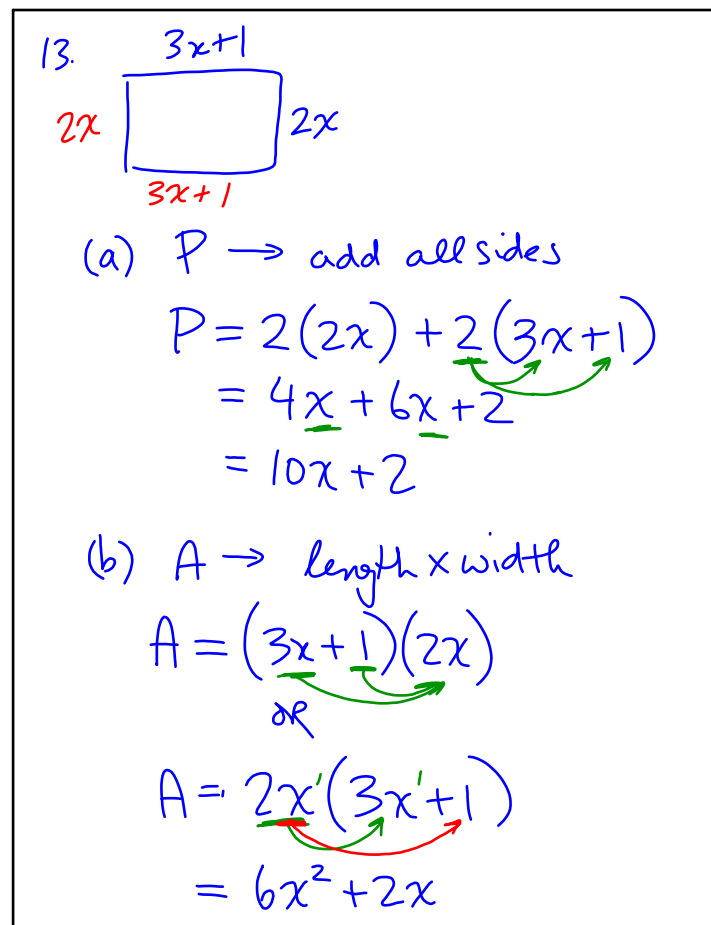 13. 3x+1
2x 2x
3x+1
(a) P → add all sides
P = 2(2x) + 2(3x+1)
= 4x + 6x + 2
= 10x + 2
(b) A → length x width
A = (3x+1)(2x)
OR
A = 2x¹(3x¹+1)
= 6x² + 2x